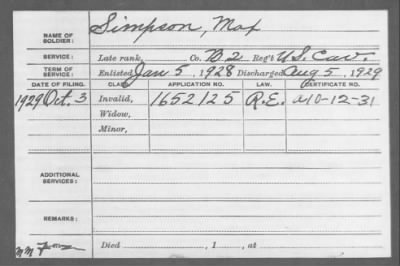 Simpson, Max
NAME OF SOLDIER:
SERVICE: Late rank, Co. B. 2 Reg't U.S. Cav.
TERM OF SERVICE: Enlisted Jan 5, 1928 Discharged Aug 5, 1929
DATE OF FILING. CLASS. APPLICATION NO. LAW. CERTIFICATE NO.
1929 Oct. 3 Invalid, 1652125 R.E. 10-12-31
Widow,
Minor,
ADDITIONAL SERVICES:
REMARKS:
Died , 1 , at